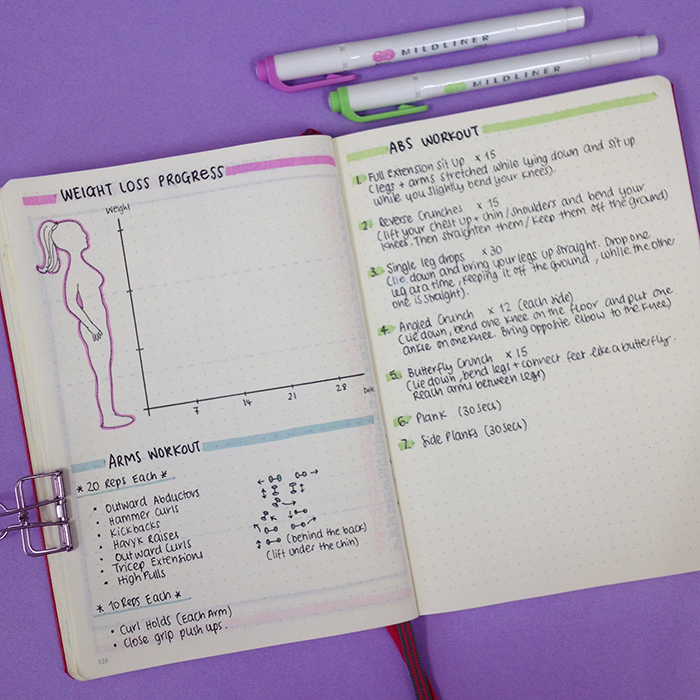 MILDLINER
MILDLINER
WEIGHT LOSS PROGRESS
Weight
7 14 21 28 Date
ARMS WORKOUT
* 20 Reps Each *
• Outward Abductors
• Hammer Curls
• Kickbacks
• Havyk Raises
• Outward Curls
• Tricep Extensions
• High Pulls
(behind the back)
(lift under the chin)
* 10 Reps Each *
• Curl Holds (Each Arm)
• Close grip push ups.
128
ABS WORKOUT
1. Full extension sit up x 15
(legs + arms stretched while lying down and sit up
while you slightly bend your knees).
2. Reverse Crunches x 15
(lift your chest up + chin / shoulders and bend your
knees. Then straighten them / keep them off the ground)
3. Single leg drops x 30
(lie down and bring your legs up straight. Drop one
leg at a time, keeping it off the ground, while the other
one is straight).
4. Angled Crunch x 12 (each side)
(lie down, bend one knee on the floor and put one
ankle on one knee. Bring opposite elbow to the knee)
5. Butterfly Crunch x 15
(lie down, bend legs + connect feet like a butterfly.
Reach arms between legs)
6. Plank (30 secs)
7. Side Planks (30 secs)